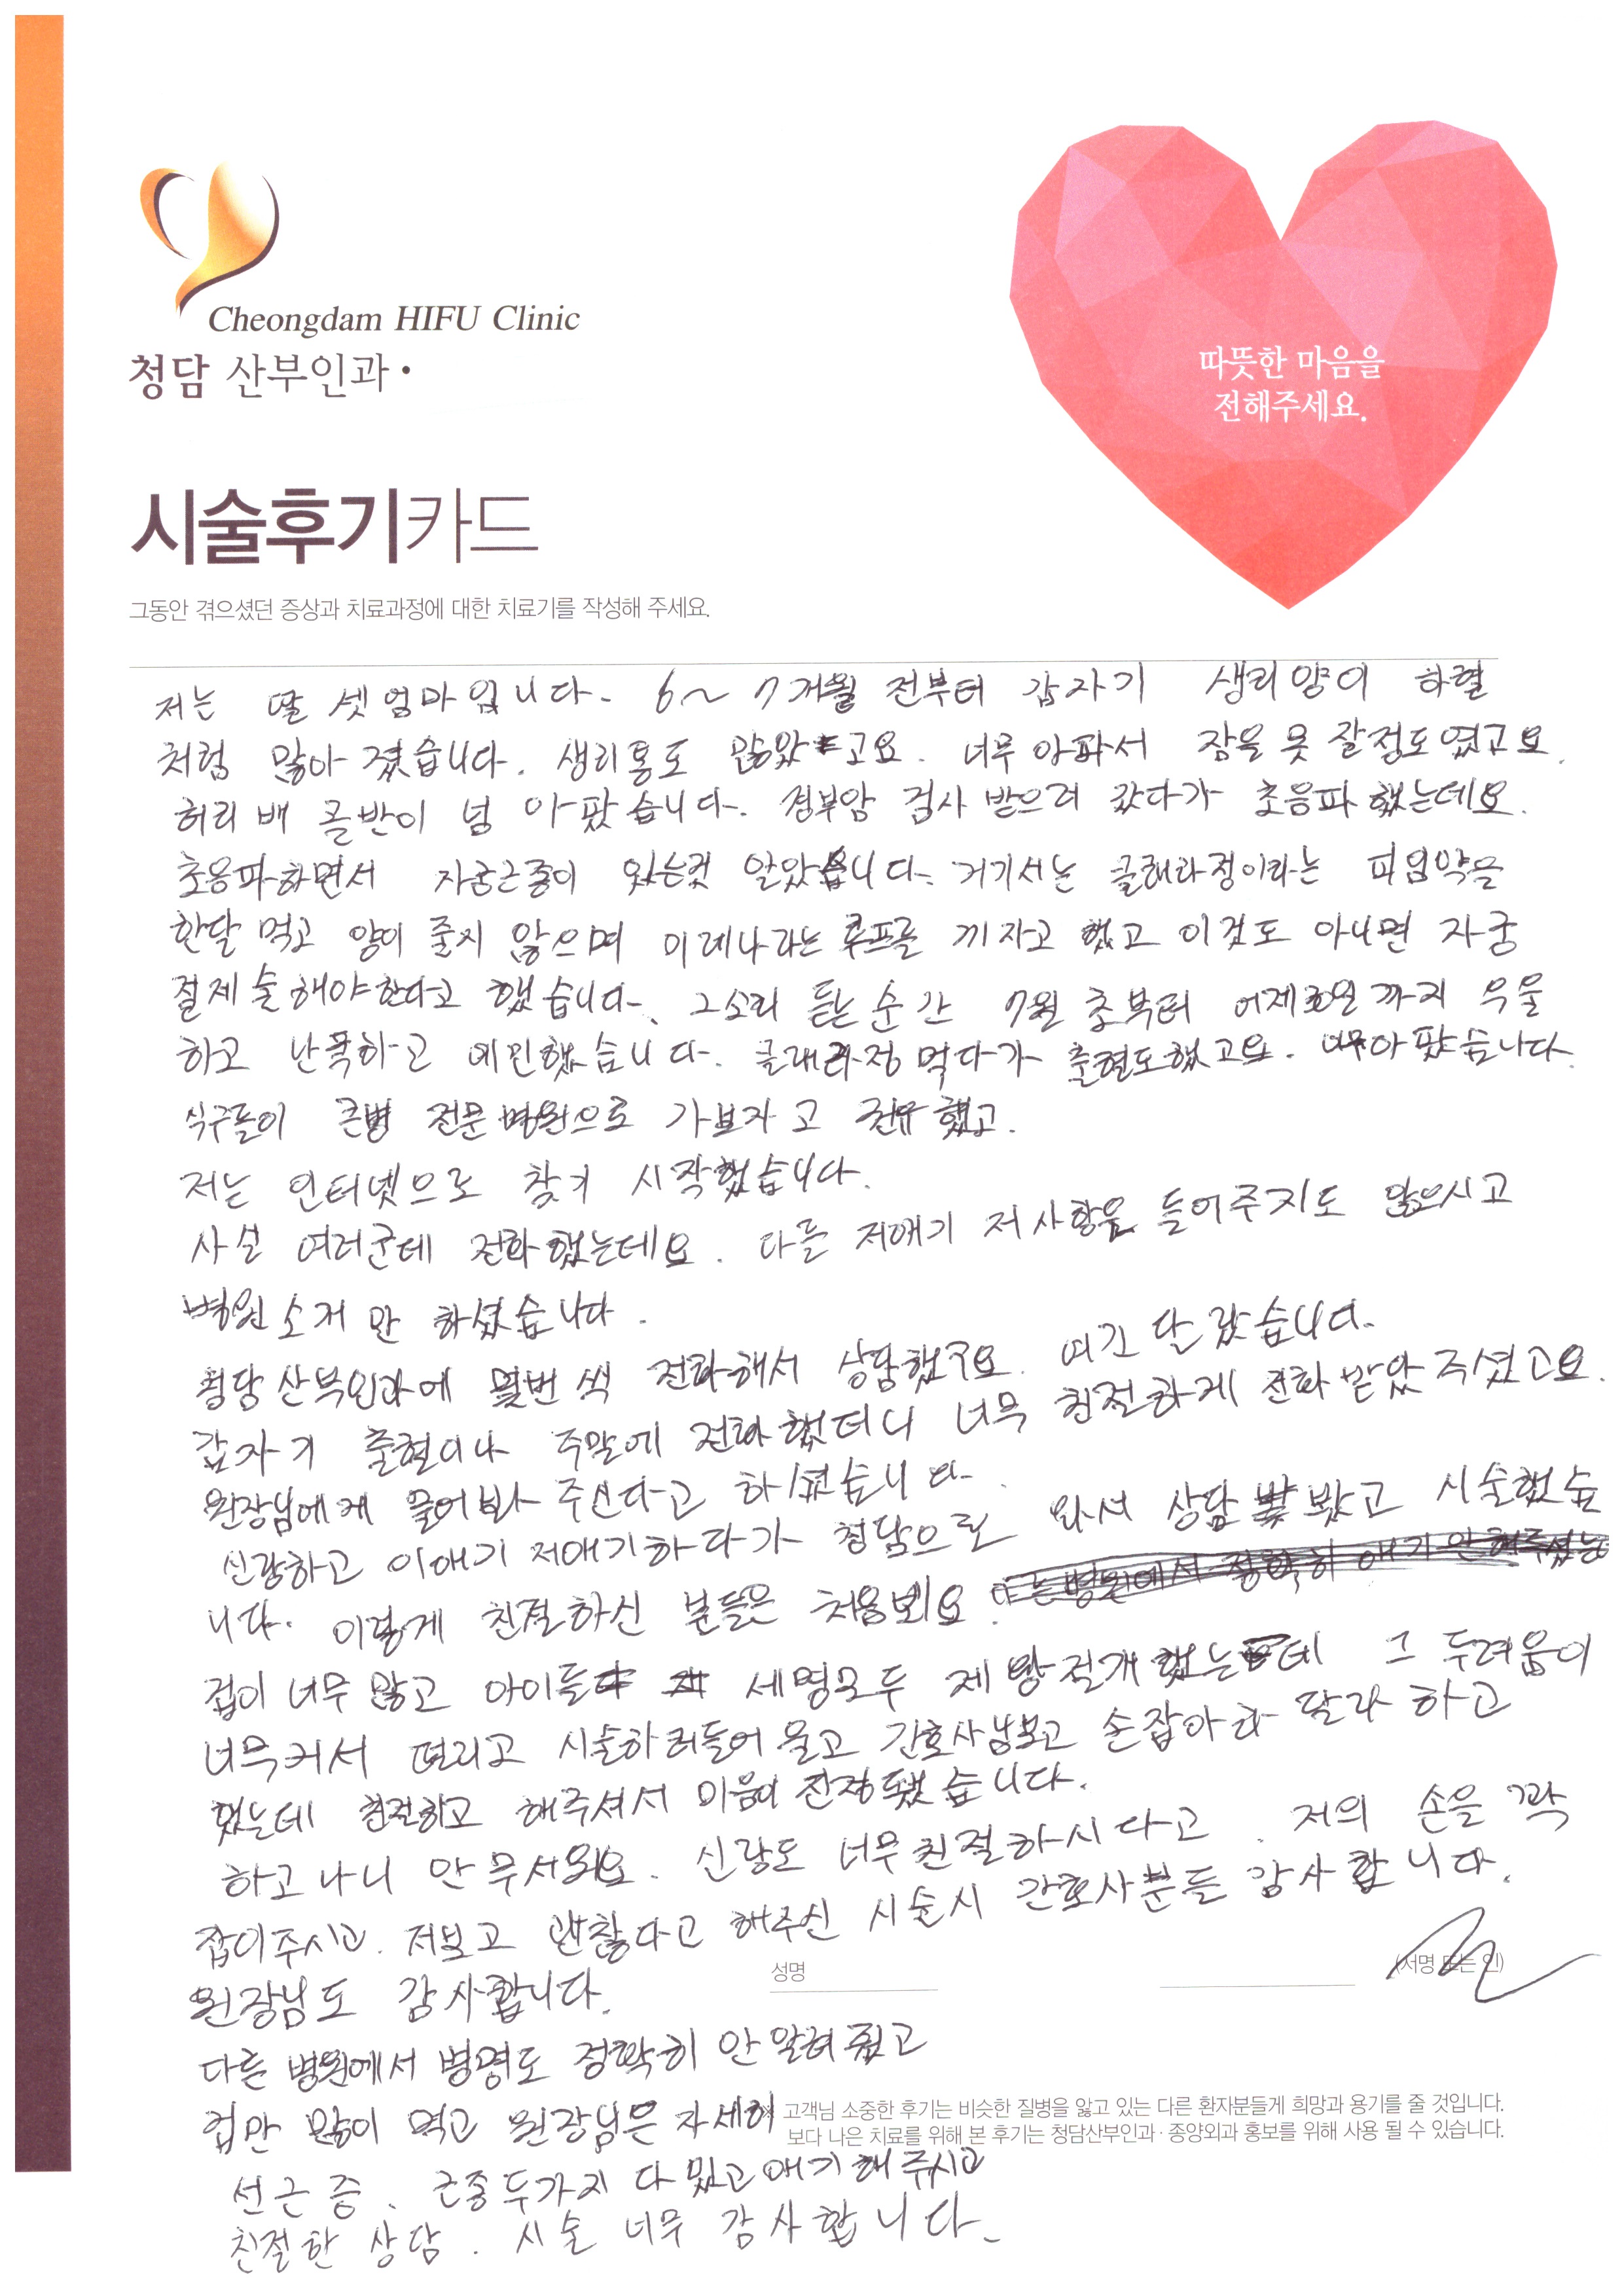 Cheongdam HIFU Clinic
청담 산부인과·
따뜻한 마음을
전해주세요.
시술후기카드
그동안 겪으셨던 증상과 치료과정에 대한 치료기를 작성해 주세요.
저는 딸 셋 엄마입니다. 6~7개월 전부터 갑자기 생리양이 하혈
처럼 많아 졌습니다. 생리통도 많았고요. 너무 아파서 잠을 못 잘정도였고요.
허리 배 골반이 넘 아팠습니다. 경부암 검사 받으려 갔다가 초음파했는데요.
초음파하면서 자궁근종이 있는것 알았습니다. 거기서는 클래라정이라는 피임약을
한달 먹고 양이 줄지 않으며 미레나라는 루프를 끼자고 했고 이것도 아니면 자궁
절제술해야한다고 했습니다. 그소리 듣는 순간 7월 초부터 어제 까지 우울
하고 난폭하고 예민했습니다. 클래라정 먹다가 출혈도했고요. 너무아팠습니다.
식구들이 큰병 전문병원으로 가보자고 권유했고.
저는 인터넷으로 찾기 시작했습니다.
사실 여러군데 전화했는데요. 다들 저얘기 저사항을 들어주지도 않으시고
병원소개만 하셨습니다.
청담산부인과에 몇번씩 전화해서 상담했구요. 여긴 달랐습니다.
갑자기 출혈이나 주말에 전화했더니 너무 친절하게 전화받았주셨고요.
원장님에게 물어봐 주신다고 하셨습니다.
신랑하고 이얘기 저얘기하다가 청담으로 와서 상담 봤고 시술했습
니다. 이렇게 친절하신 분들은 처음뵈요.
겁이 너무 많고 아이들 세명모두 제왕절개했는데 그 두려움이
너무커서 떨리고 시술하러들어 울고 간호사님보고 손잡아 달라 하고
했는데 친절하고 해주셔서 마음이 진정됐습니다.
하고나니 안무서워요. 신랑도 너무친절하시다고. 저의 손을 꽉
잡아주시고. 저보고 괜찮다고 해주신 시술시 간호사분들 감사합니다.
원장님도 감사합니다.
성명 (서명 또는 인)
다른 병원에서 병명도 정확히 안알려줬고
겁만 많이 먹고 원장님은 자세히
※ 고객님 소중한 후기는 비슷한 질병을 앓고 있는 다른 환자분들게 희망과 용기를 줄 것입니다.
보다 나은 치료를 위해 본 후기는 청담산부인과·종양외과 홍보를 위해 사용 될 수 있습니다.
선근증. 근종두가지 다 있고 얘기해 주시고
친절한 상담. 시술 너무 감사합니다.